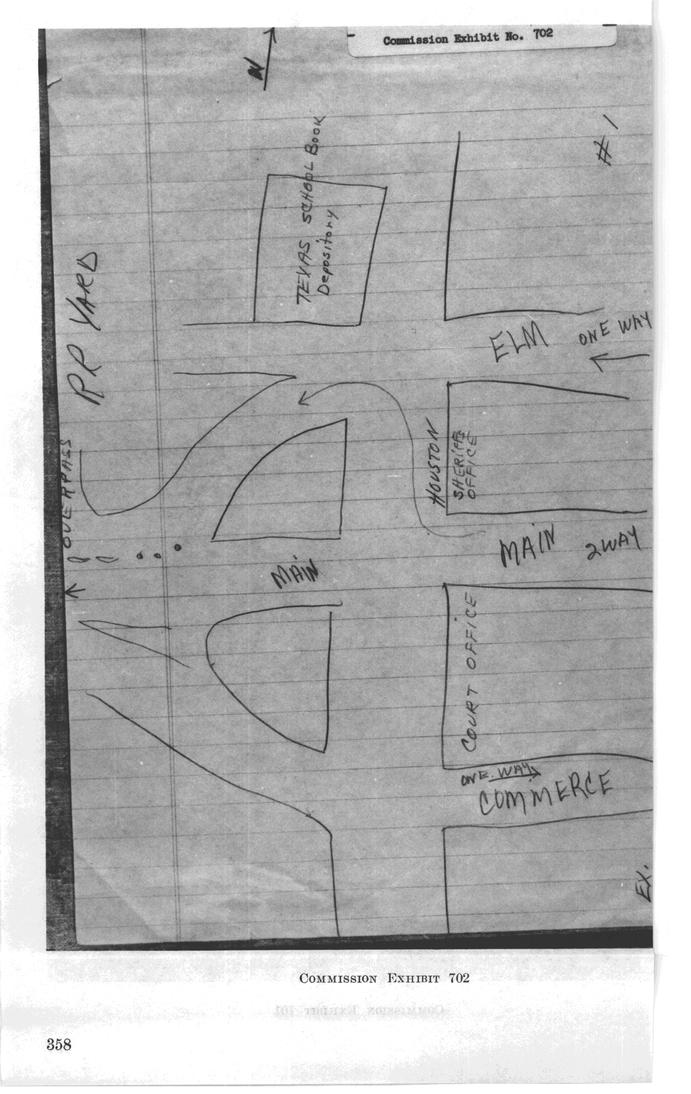 Commission Exhibit No. 702
N
# 1
TEXAS SCHOOL BOOK
Depository
RR YARD
ELM
ONE WAY
OVERPASS
HOUSTON
SHERIFFS
OFFICE
MAIN
MAIN
2WAY
COURT OFFICE
ONE WAY
COMMERCE
EX.
COMMISSION EXHIBIT 702
358